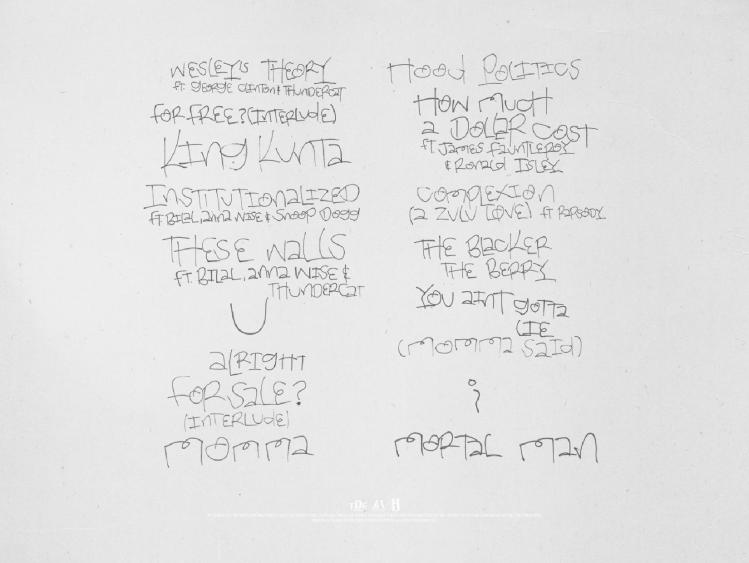 WESLEY'S THEORY
ft. GEORGE CLINTON & THUNDERCAT
FOR FREE? (INTERLUDE)
KING KUNTA
INSTITUTIONALIZED
ft BILAL, anna WISE & SNOOP DOGG
THESE WALLS
ft. BILAL, anna WISE &
THUNDERCAT
U
ALRIGHT
FOR SALE?
(INTERLUDE)
MOMMA
HOOD POLITICS
HOW MUCH
a DOLLAR COST
ft JAMES FAUNTLEROY
& RONALD ISLEY
COMPLEXION
(a ZULU LOVE) ft RAPSODY
THE BLACKER
THE BERRY
YOU AINT GOTTA
LIE
(MOMMA SAID)
i
MORTAL MAN
TDE